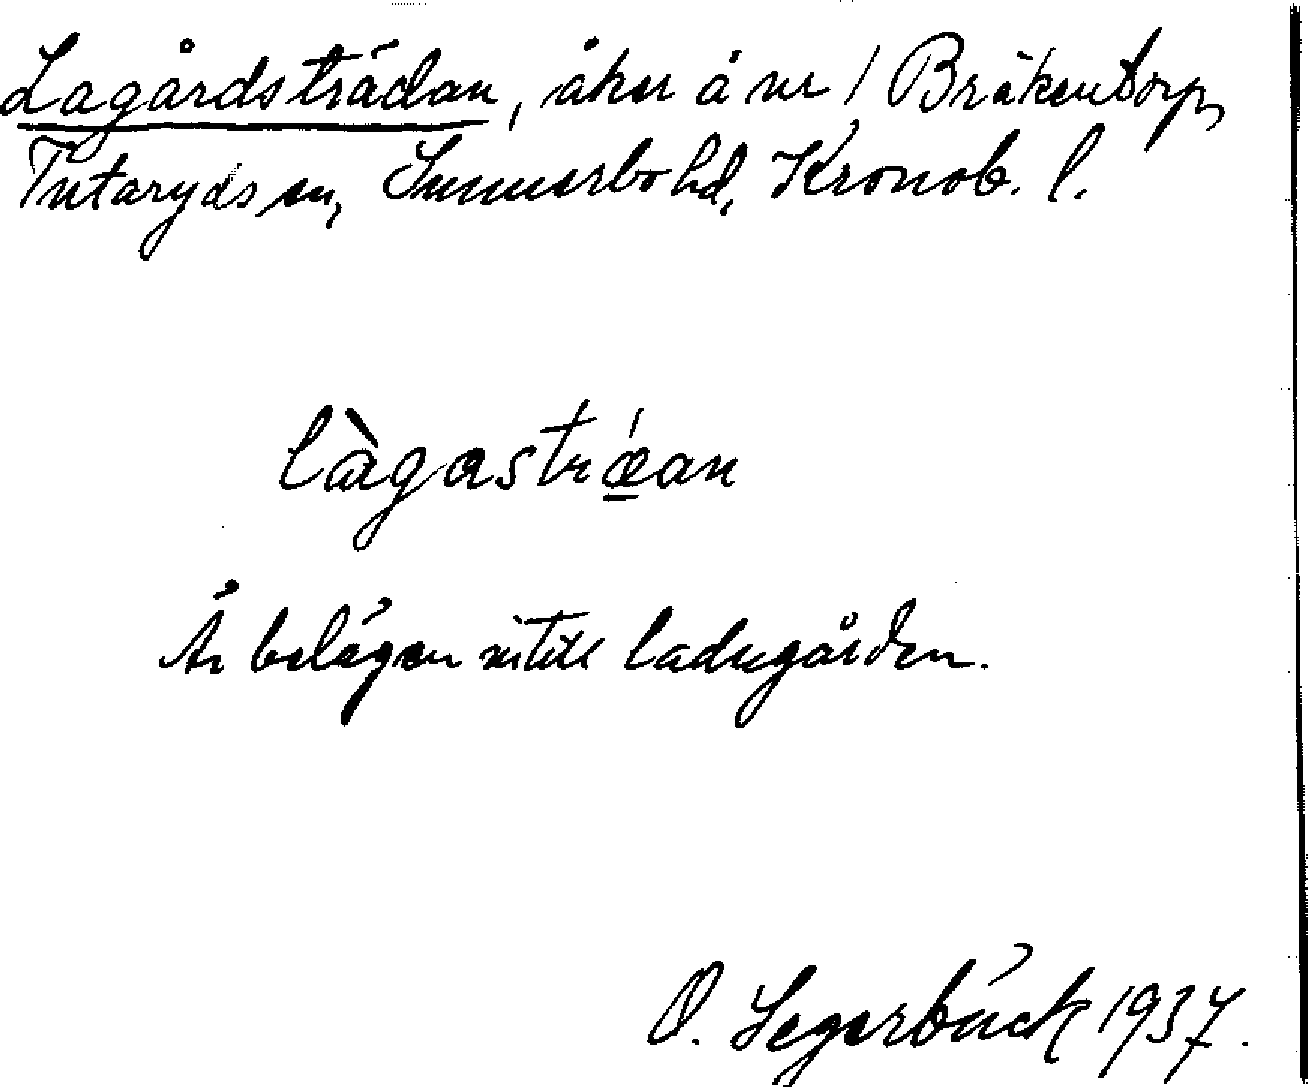 Lagårdsträdan, åker å nr 1 Bräkentorp,
Tutaryds sn, Sunnerbo hd, Kronob. l.
làgastrǽ̱an
Är belägen intill ladugården.
O. Segerbäck 1937.